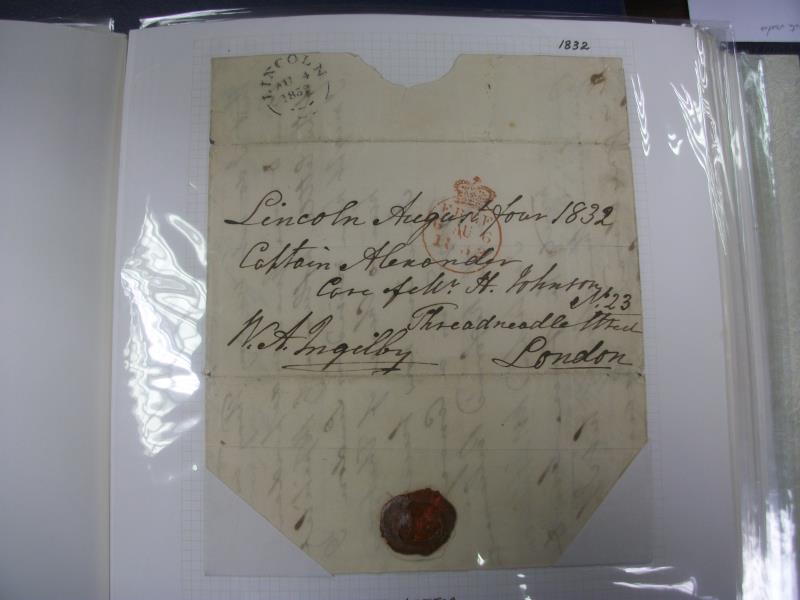 1832
LINCOLN
AU 4
1832
FREE
AU 6
1832
Lincoln August four 1832
Captain Alexander
Care of Mr. H. Johnson
No. 23
Threadneadle Street
W. A. Ingilby
London